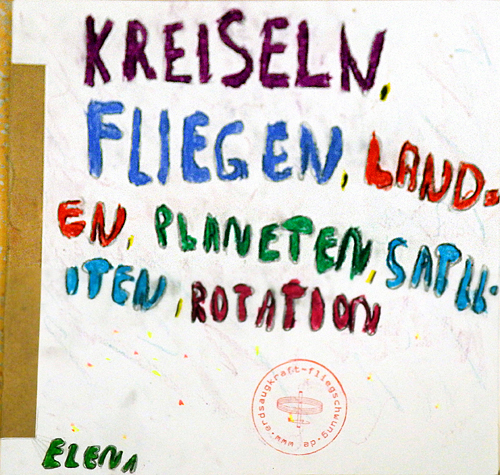 KREISELN,
FLIEGEN, LAND-
EN, PLANETEN, SATLL-
ITEN, ROTATION
www.erdsaugkraft-fliegschwung.de
ELENA